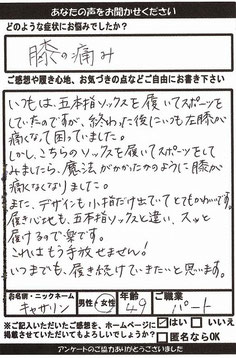 あなたの声をお聞かせください
どのような症状にお悩みでしたか?
膝の痛み
ご感想や履き心地、お気づきの点などご自由にお書き下さい
いつもは、五本指ソックスを履いてスポーツを
していたのですが、終わった後にいつも左膝が
痛くなくて困っていました。
しかし、こちらのソックスを履いてスポーツをして
みましたら、魔法がかかったように膝が
痛くなくなりました。
また、デザインも小指だけ出ていてとてもかわいです。
履き心地も、五本指ソックスと違い、スッと
履けるので楽です。
これはもう手放せません!
いつまでも、履き続けていきたいと思います。
お名前・ニックネーム
キャサリン
男性・女性
年齢
49
ご職業
パート
※ご記入いただいたご感想を、ホームページに
掲載させていただいてもよろしいでしょうか?
☑はい □いいえ
□匿名ならOK
アンケートのご協力ありがとうございました